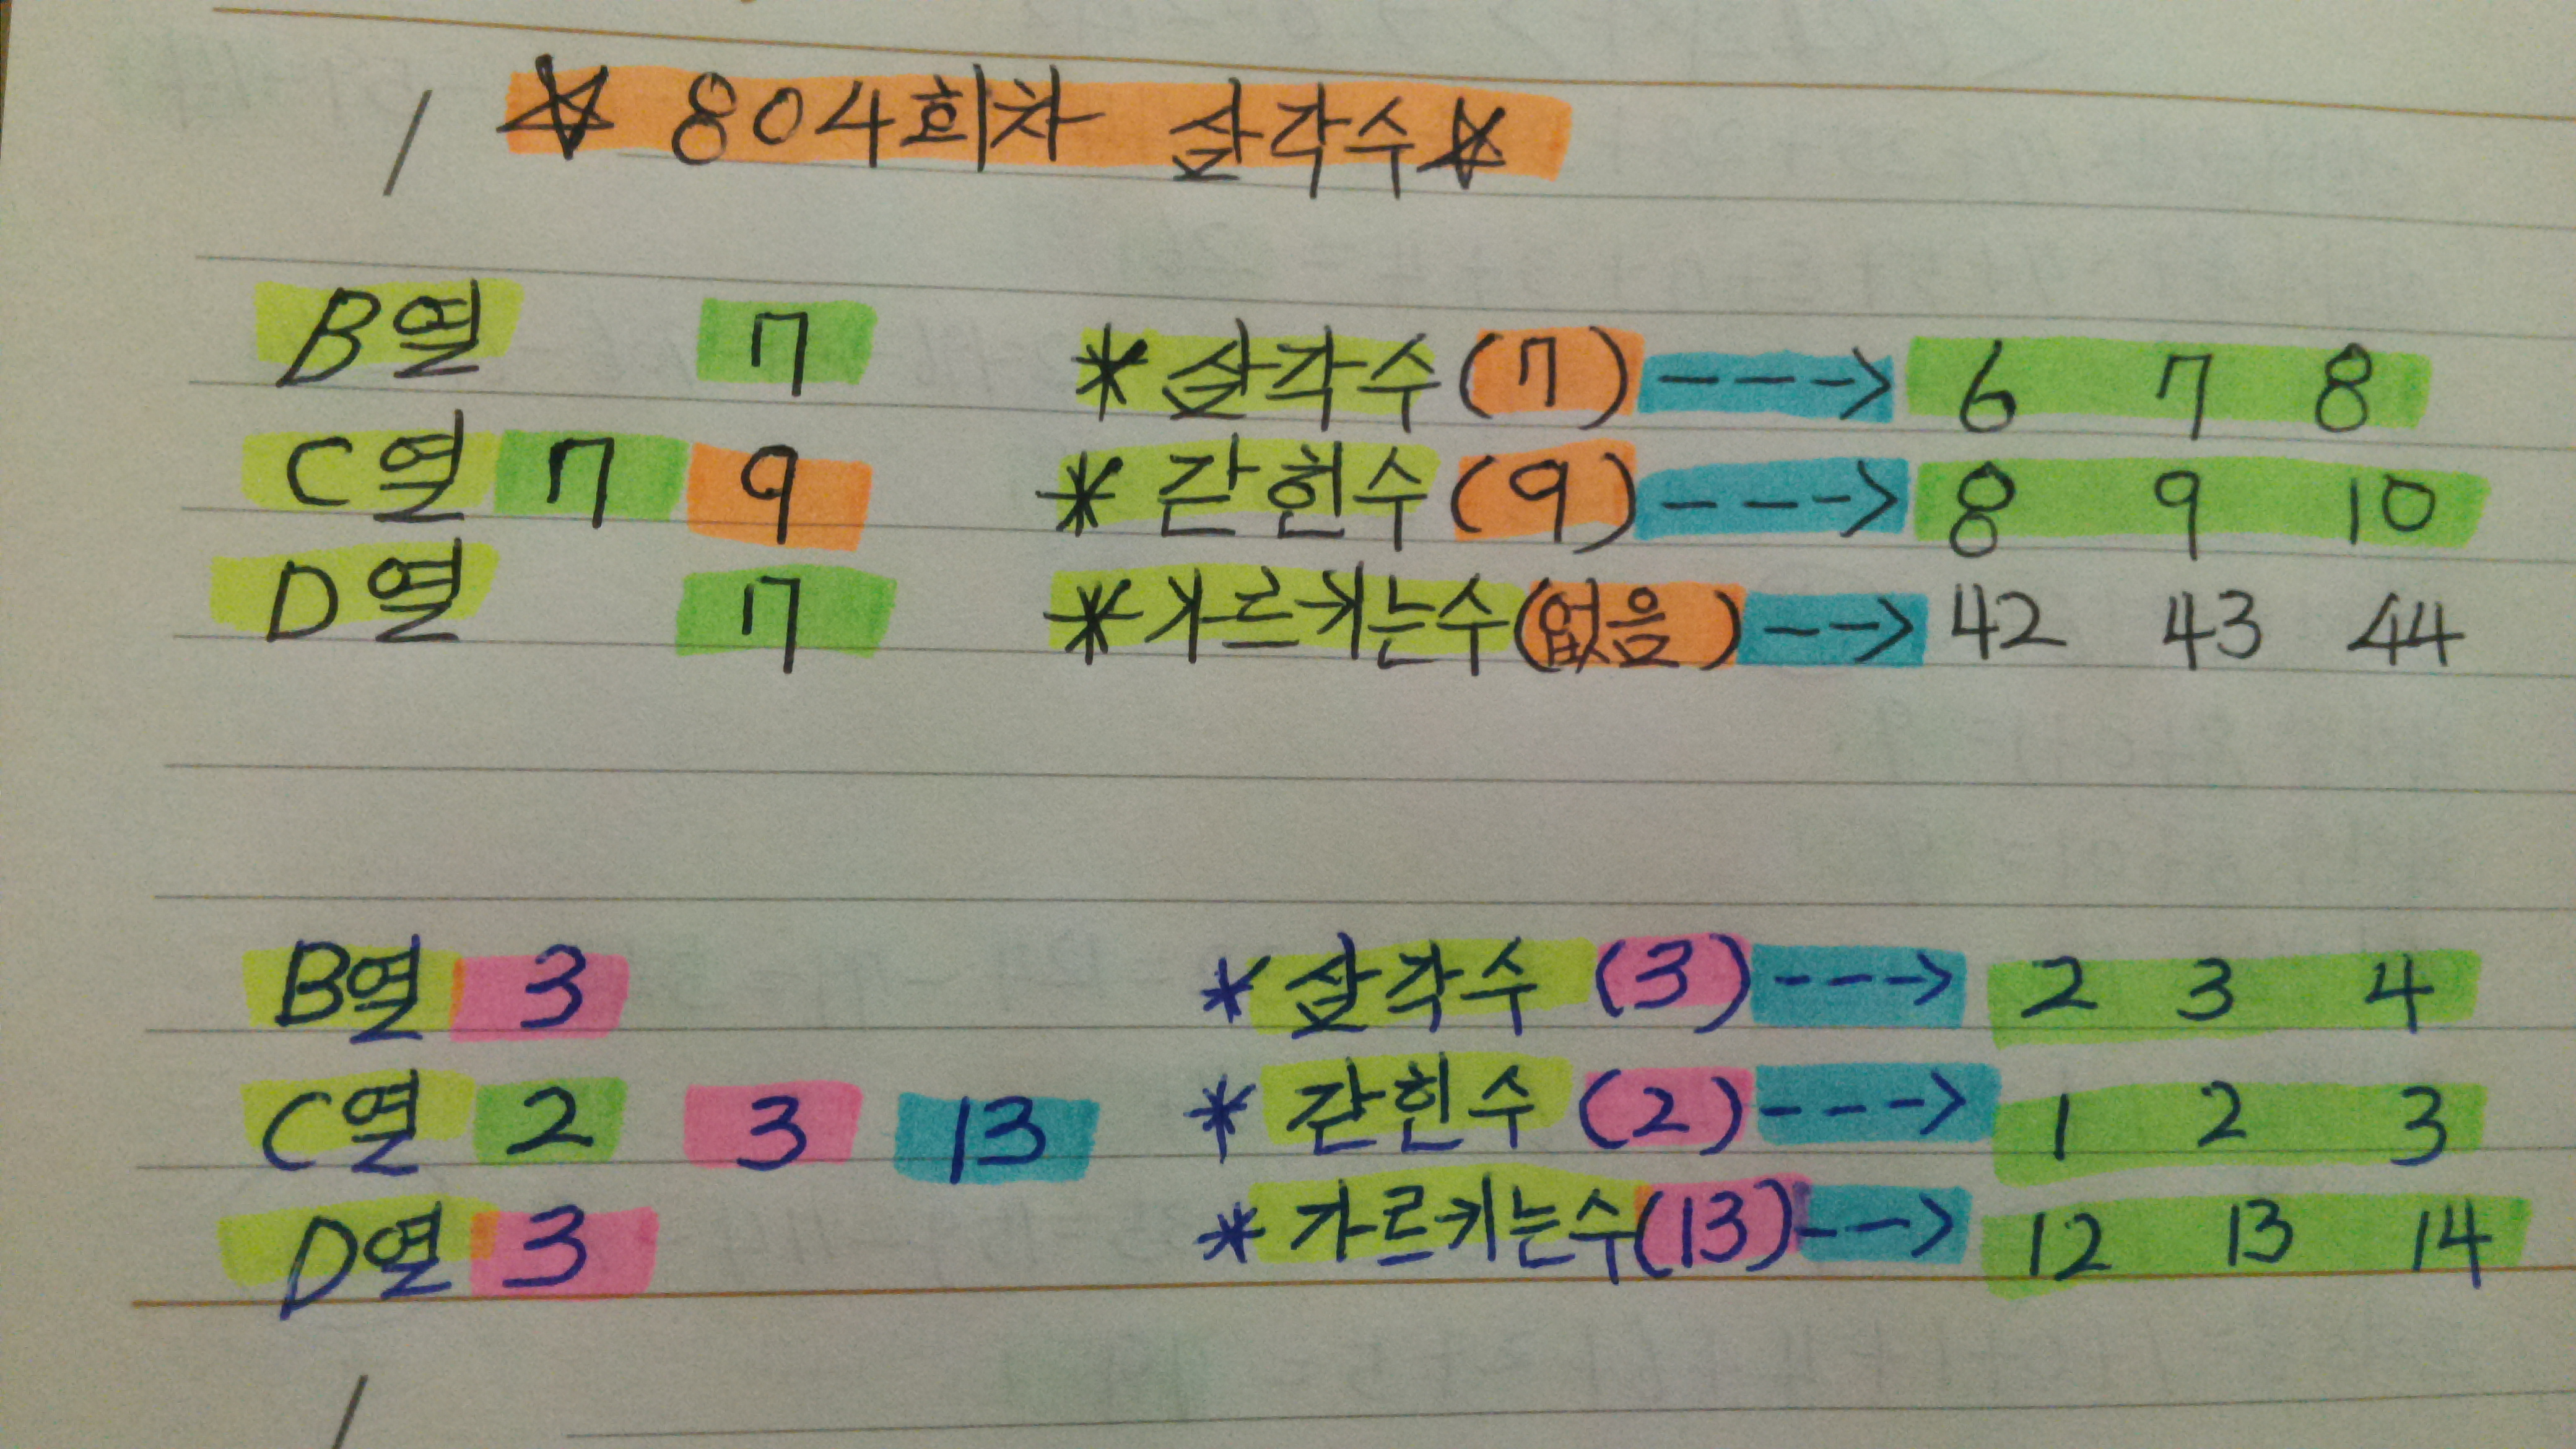 ☆ 804회차 삼각수☆
B열 7 *삼각수(7)---> 6 7 8
C열 7 9 *갇힌수(9)---> 8 9 10
D열 7 *가르키는수(없음)--> 42 43 44
B열 3 *삼각수(3)---> 2 3 4
C열 2 3 13 *갇힌수(2)---> 1 2 3
D열 3 *가르키는수(13)---> 12 13 14